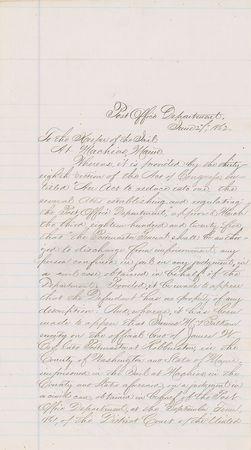 Post Office Department,
June 27, 1862.
To the Keeper of the Jail
At Machias, Maine
Whereas, it is provided by the thirty
eighth section of the Act of Congress en-
titled "An Act to reduce into one the
several Acts establishing and regulating
the Post Office Department," approved March
the third eighteen hundred and twenty five,
that the Postmaster General shall be author-
ized to discharge from imprisonment any
person confined in jail on any judgment in
a civil case obtained in behalf of the
Department, Provided, it be made to appear
that the Defendant has no property of any
description: And, whereas, it has been
made to appear that James M.
surety on the official bond of James M.
late Postmaster at Robbinston, in the
County of Washington and State of Maine,
imprisoned in the Jail at Machias in the
County and State aforesaid, on a judgment in
a civil case, obtained in behalf of the Post
Office Department, at the September Term
1861, of the District Court of the United